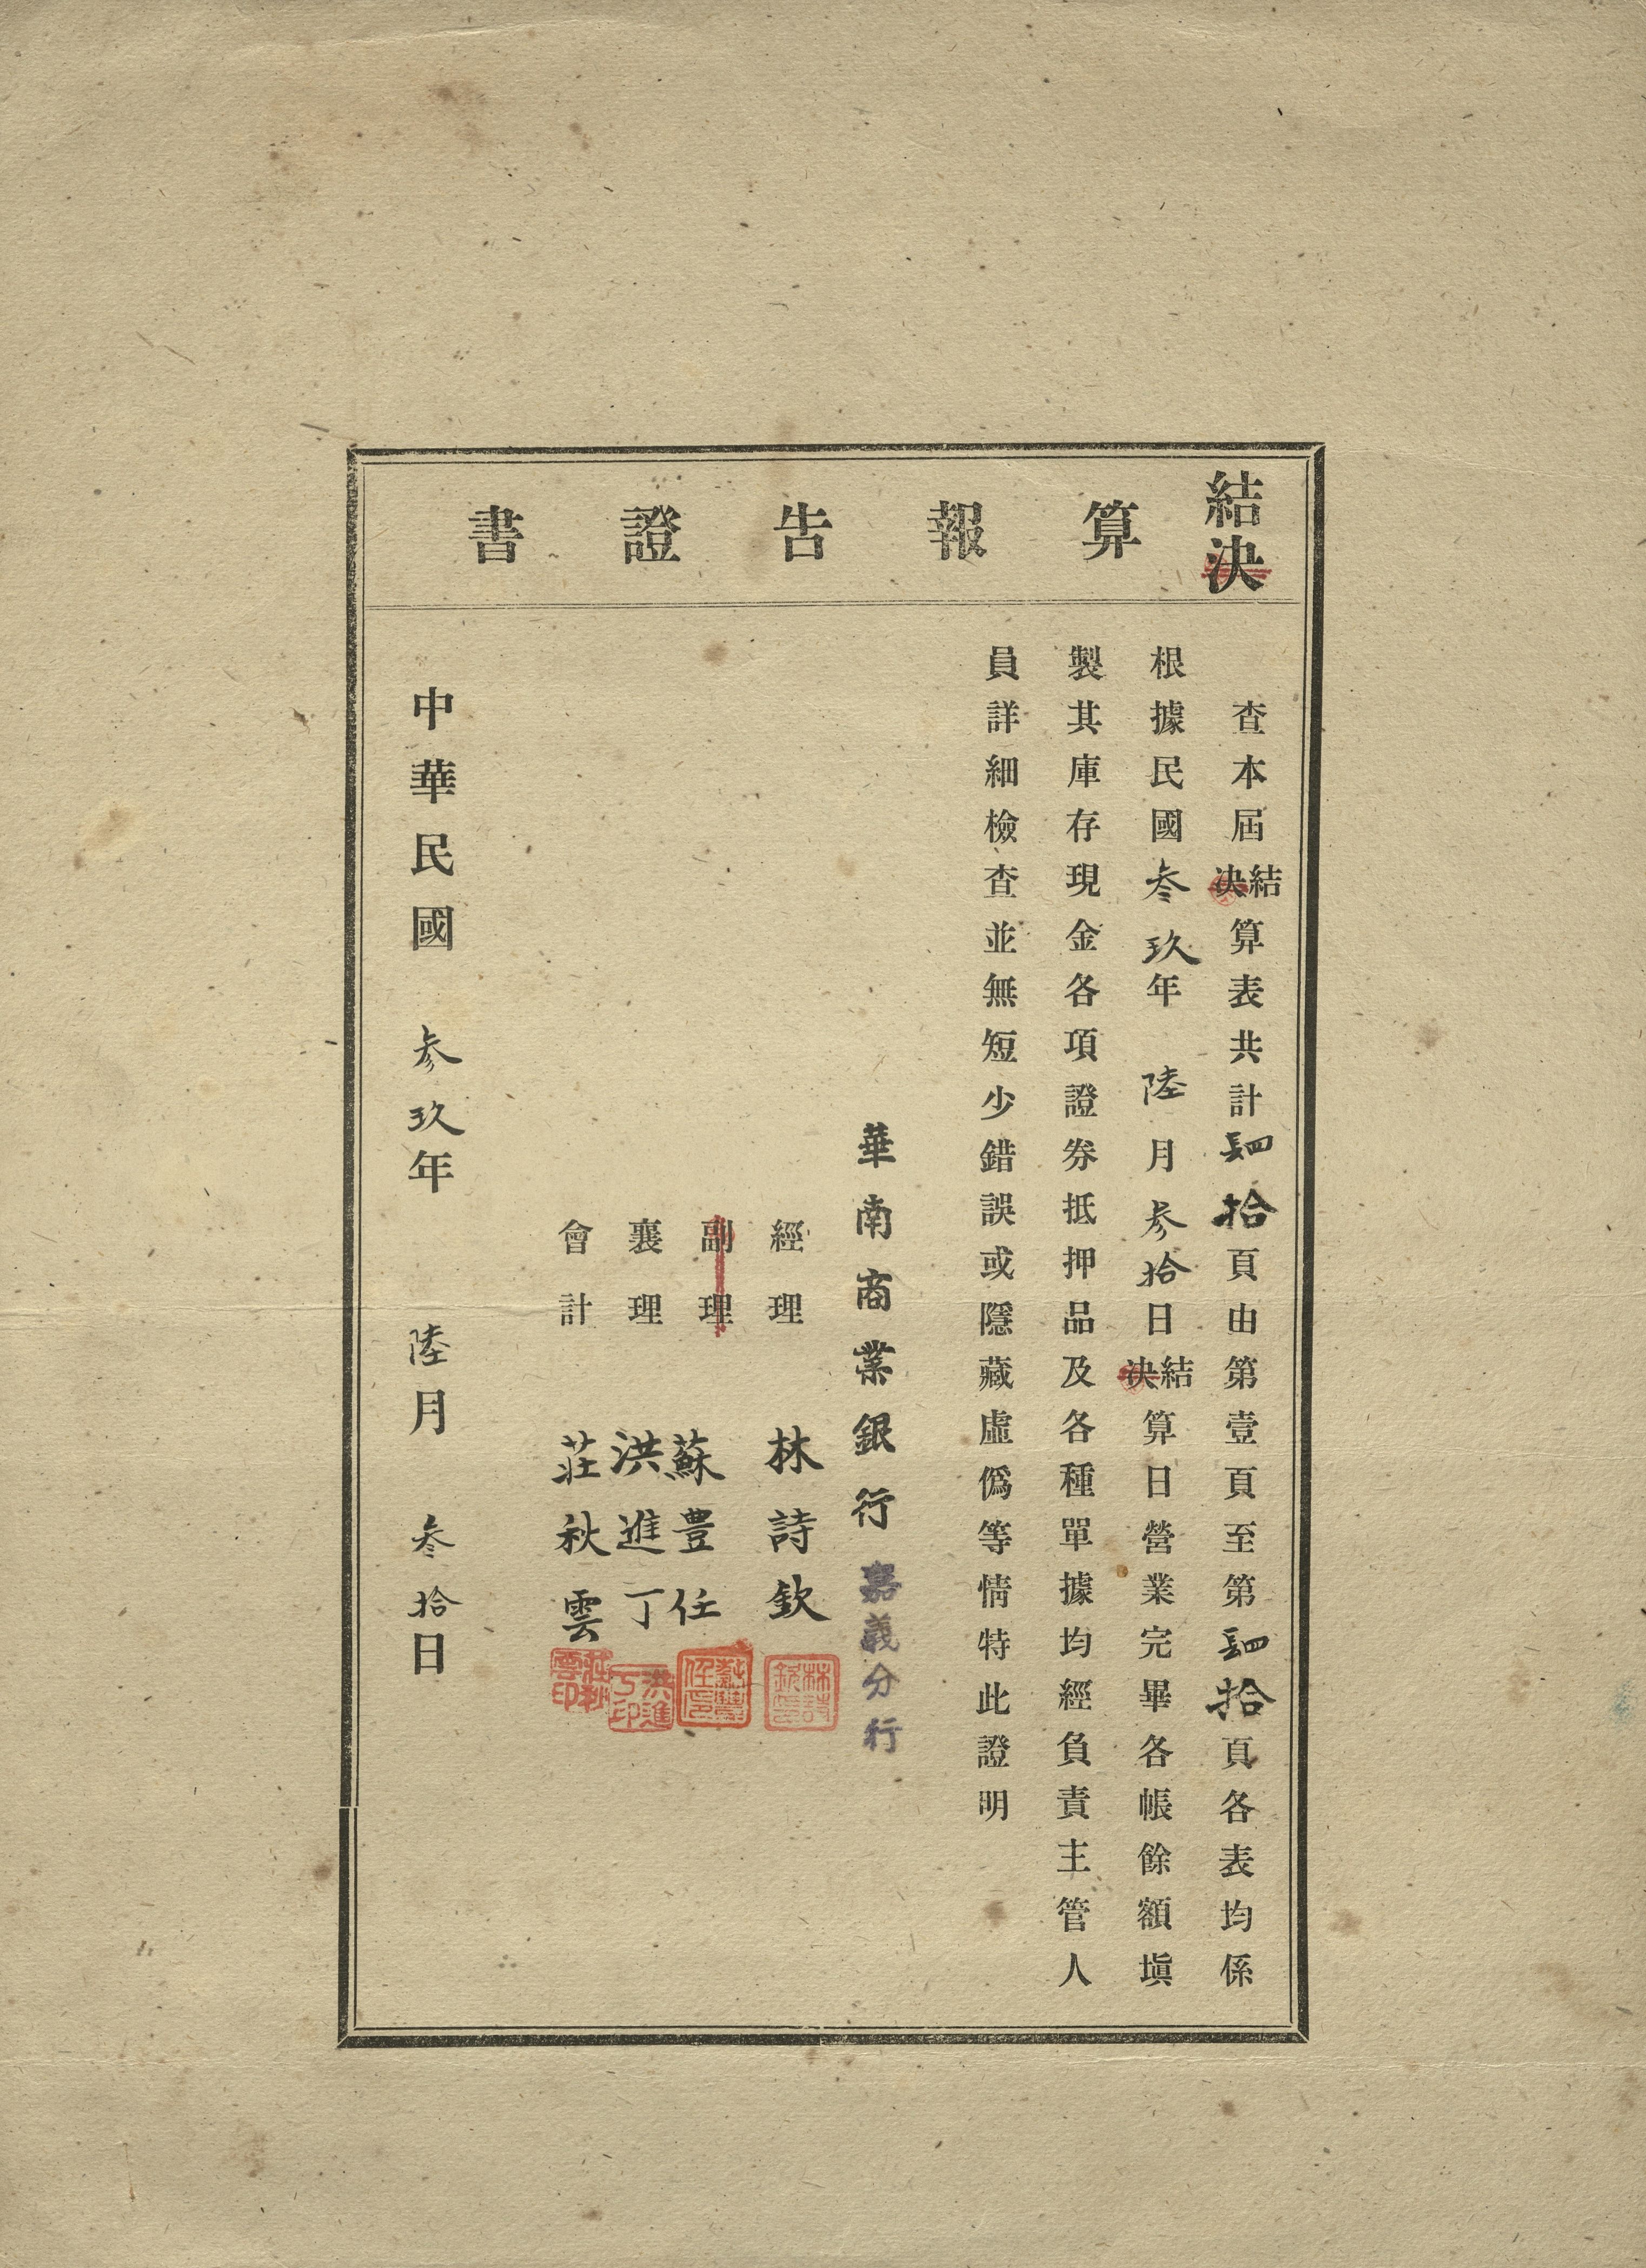 結決算報告證書
查本屆結決算表共計肆拾頁由第壹頁至第肆拾頁各表均係
根據民國叁玖年陸月叁拾日結決算日營業完畢各帳餘額塡
製其庫存現金各項證券抵押品及各種單據均經負責主管人
員詳細檢查並無短少錯誤或隱藏虛僞等情特此證明
華南商業銀行嘉義分行
經理 林詩欽
林詩欽印
副理 蘇豊任
蘇豐任印
襄理 洪進丁
洪進丁印
會計 莊秋雲
莊秋雲印
中華民國叁玖年陸月叁拾日